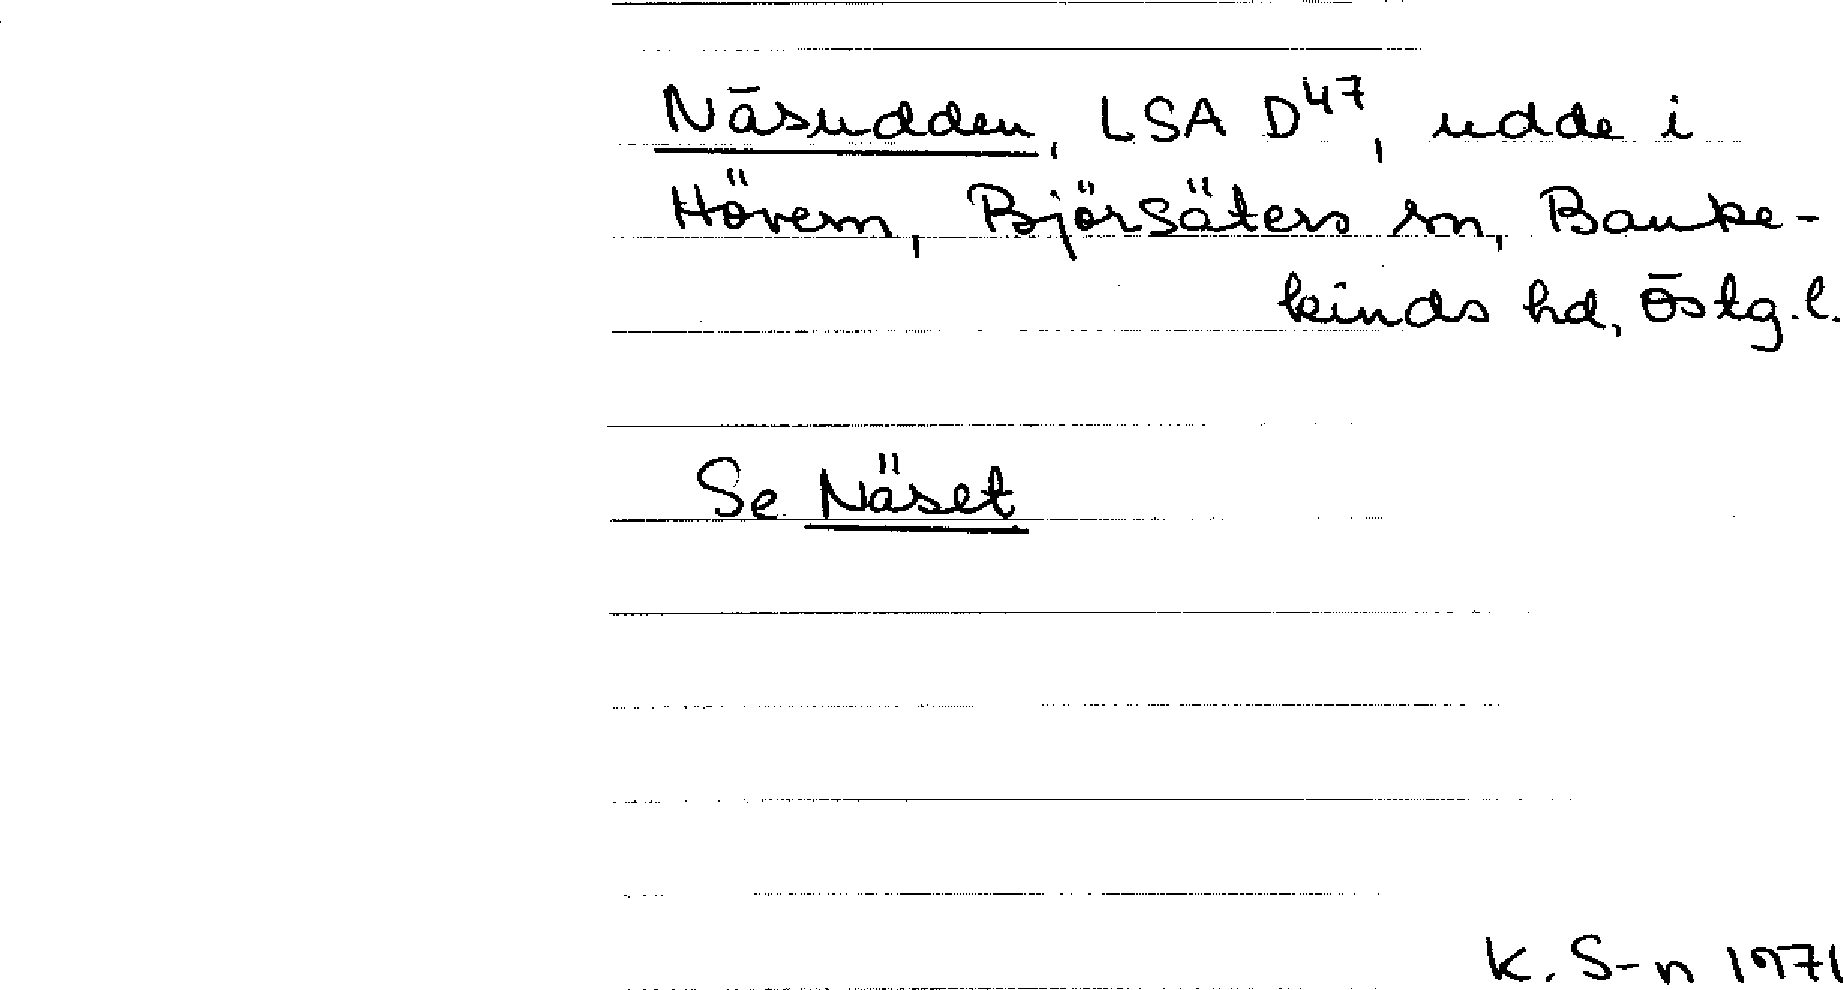 Näsudden, LSA D47, udde i
Hövern, Björsäters sn, Banke-
kinds hd, Östg.l.
Se Näset
K. S-n 1971